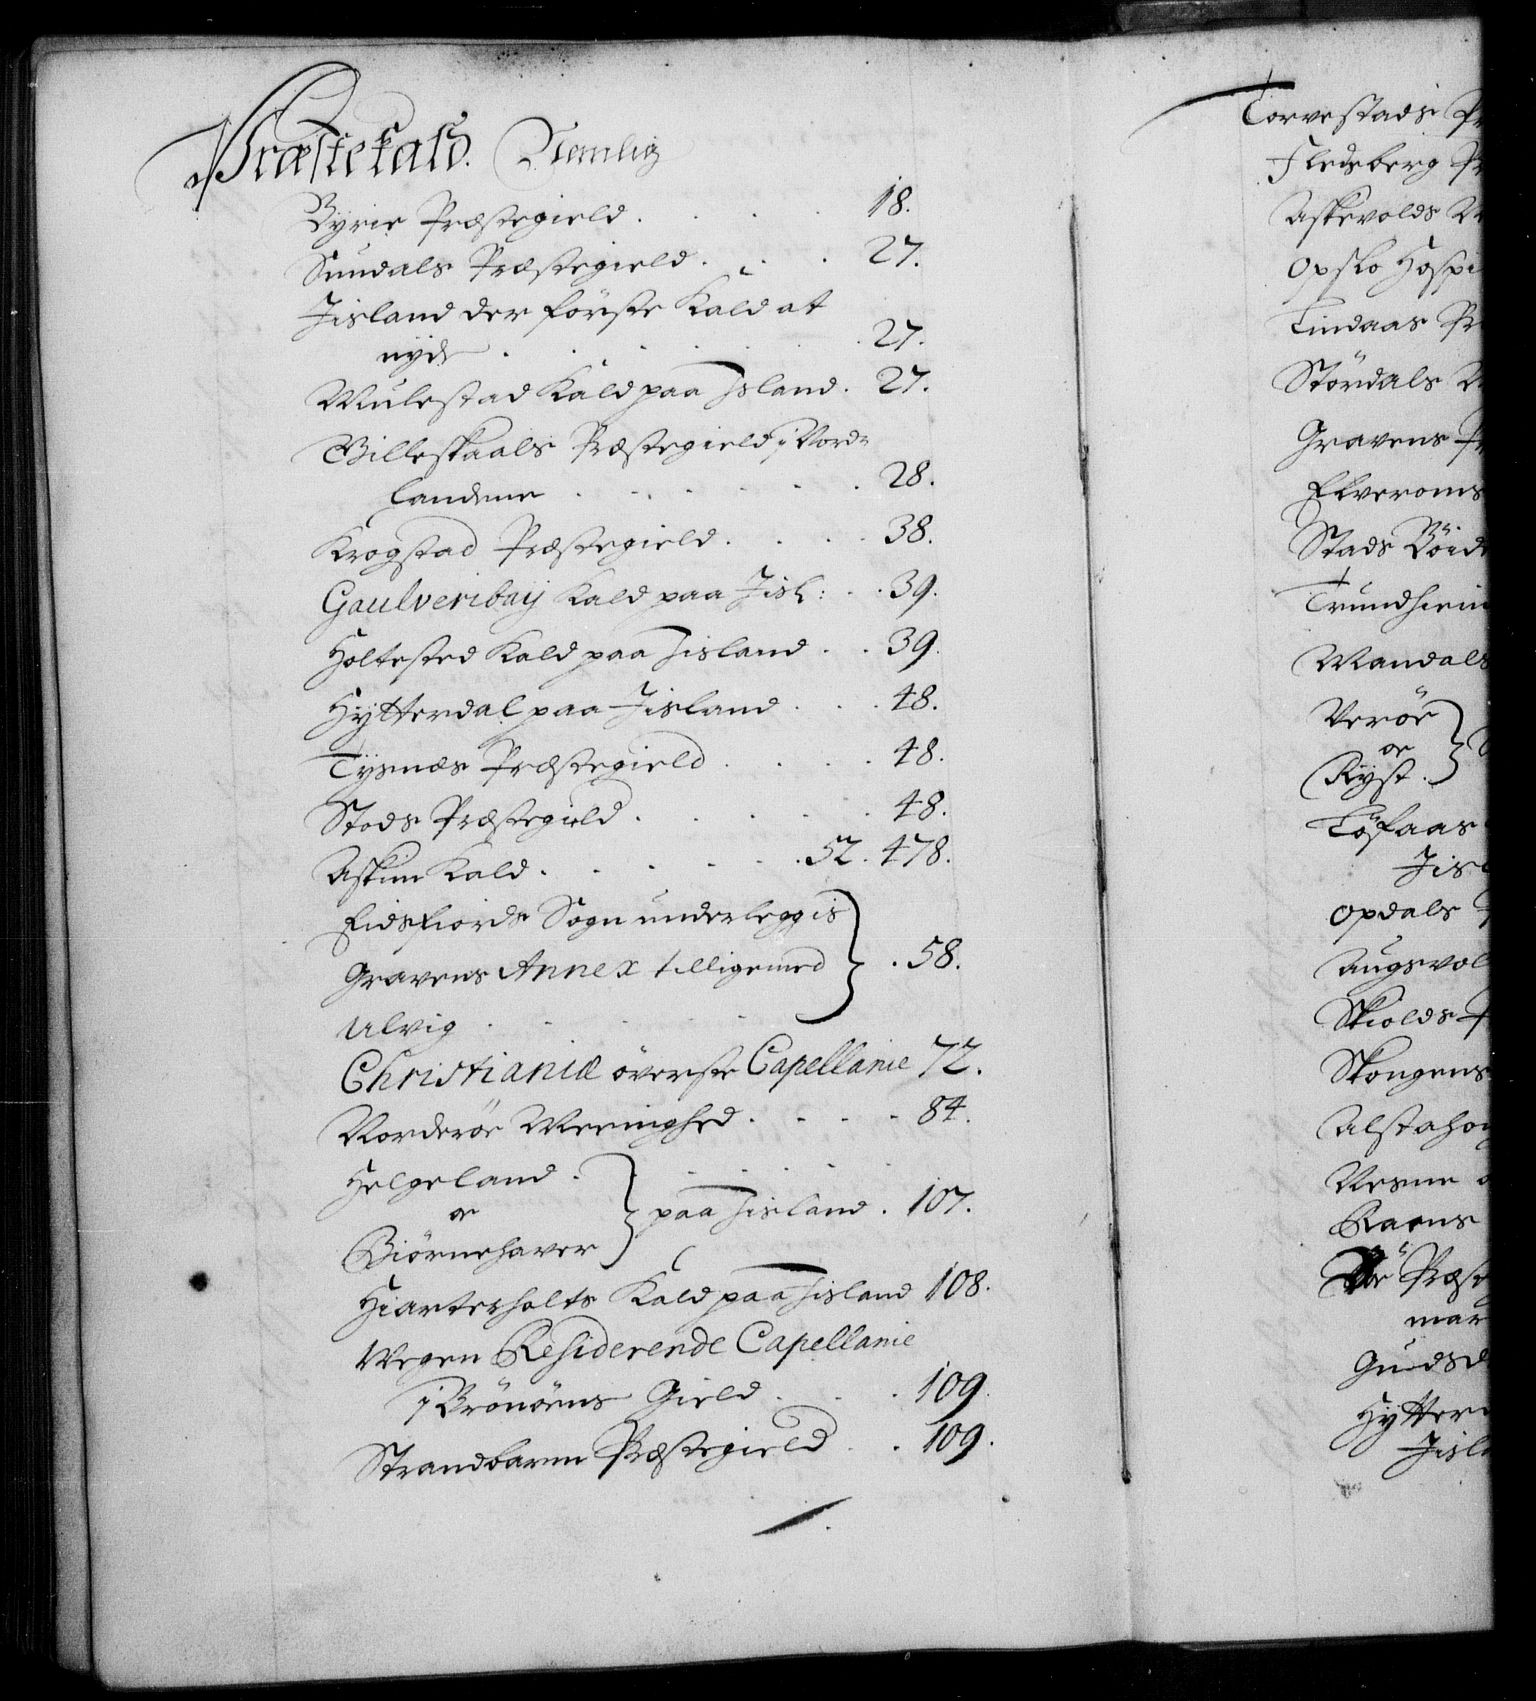 Præstekald. Nemlig
Byrie Præstegield. . . . 18.
Sundals Præstegield. . . 27.
Jisland der förste Kald at
nyde . . . . . . 27.
Mulestad Kald paa Jsland. 27.
Billeskaals Præstegield i Nord-
landene . . . . . . 28.
Krogstad Præstegield. . . . 38.
Gaulveribaij Kald paa Jisl: . . 39.
Holtested Kald paa Jisland . . 39.
Hytterdal paa Jisland . . . 48.
Tysnæs Præstegield . . . . 48.
Stods Præstegield. . . . . 48.
Askim Kald. . . . . . 52. 478.
Eidsfiords Sogn underleggis
Gravens Annex tilligemed . 58.
Ulvig . . . . .
Christianiæ överste Capellanie 72.
Norderöe Menighed. . . . 84.
Helgeland . . . . . .
oc paa Jisland. 107.
Biörnehaver
Hiarterholts Kald paa Jisland 108.
Wegen Residerende Capellanie
i Brönöens Gield . . . 109.
Strandbarm Præstegield . . 109.
Torvestads Pr
Flesberg Pr
Askevolds Pr
Opslo Hospi
Lindaas Pr
Stördals
Gravens Pr
Elveroms
Stads Böide
Trundhiem
Mandals
Veröe
oc
Ryst.
Töfaas
Jis
Opdals
Augsvol
Skiolds
Skongens
Alstahou
Nesne
Raens
Öe Præst
mar
Guldsd
Hytter
Jisl